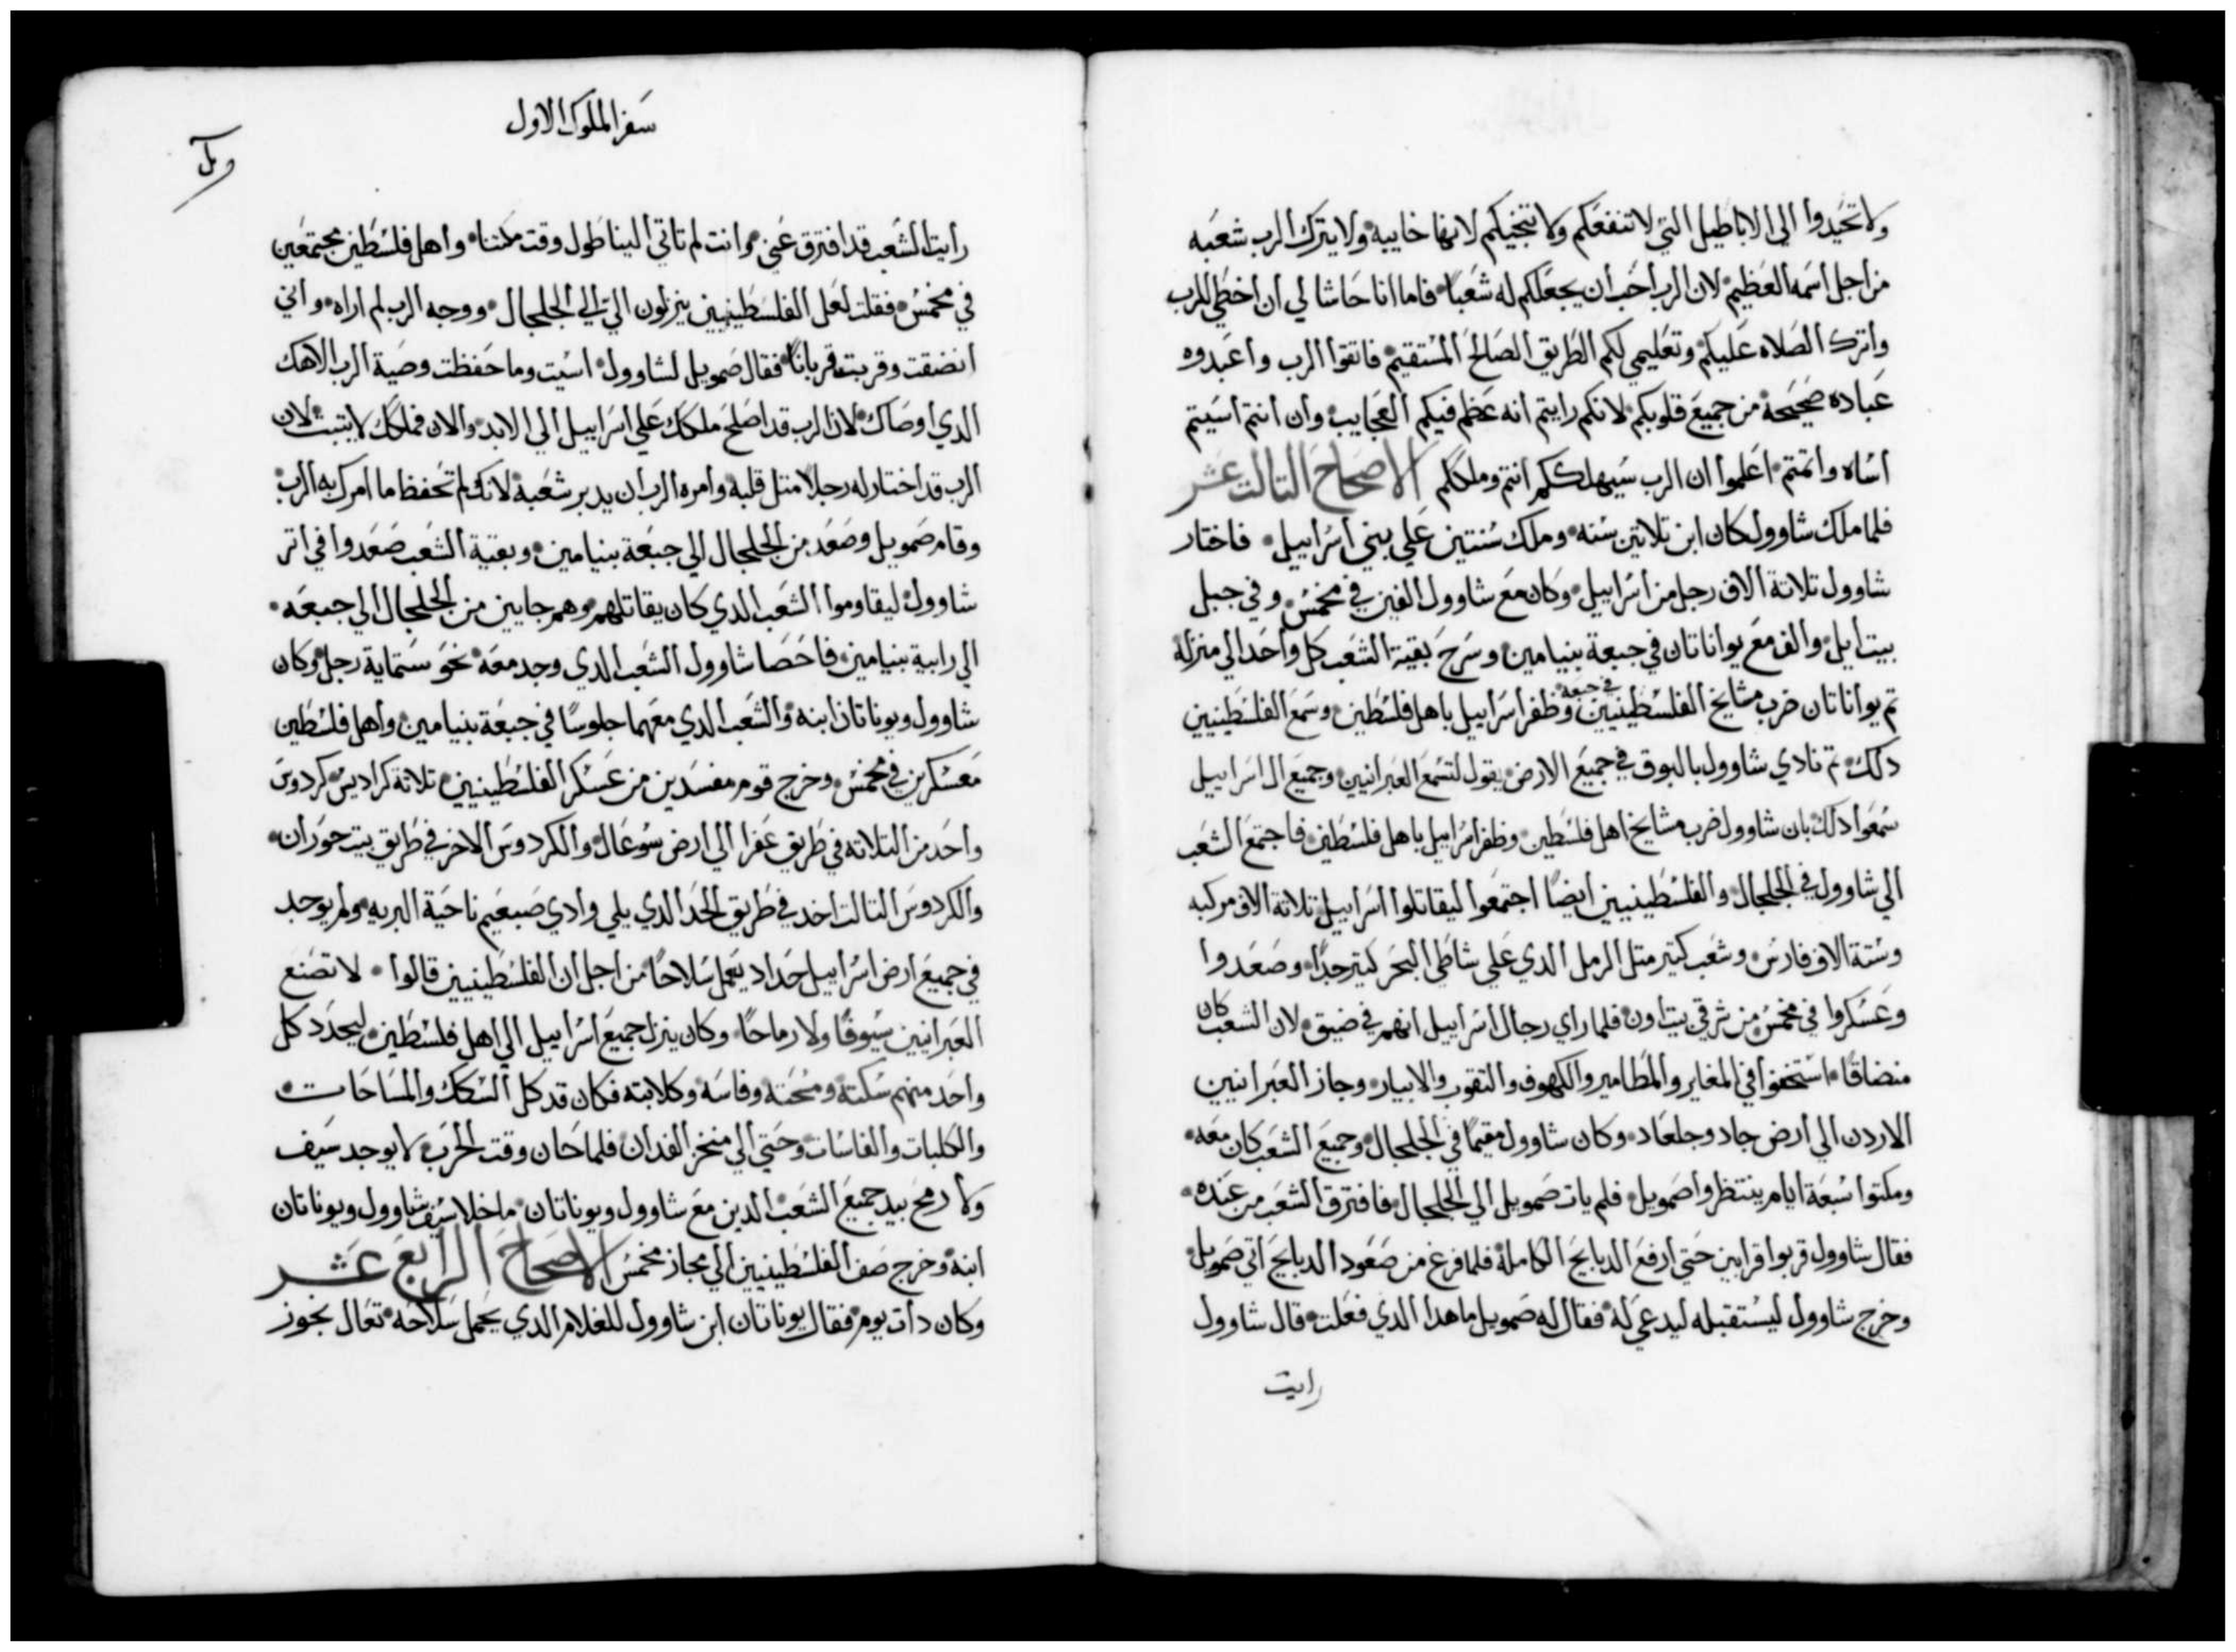 ولا تحيدوا الي الاباطيل التي لا تنفعكم ولا تنجيكم لانها خايبه ولا يترك الرب شعبه
من اجل اسمه العظيم لان الرب احب ان يجعلكم له شعبًا فاما انا حاشا لي ان اخطي للرب
واترك الصلاه عليكم وتعليمي لكم الطريق الصالح المستقيم فاتقوا الرب واعبدوه
عباده صحيحة من جميع قلوبكم لانكم رايتم انه عظم فيكم العجايب وان انتم اسيتم
اساه واتمتم اعلموا ان الرب سيهلككم انتم وملككم الاصحاح التالت عشر
فلما ملك شاوول كان ابن تلاتين سنه وملك سنتين علي بني اسراييل فاختار
شاوول تلاتة الاف رجل من اسراييل وكان مع شاوول الفين في مخمس وفي جبل
بيت ايل والف مع يواناتان في جبعة بنيامين وسرح بقية الشعب كل واحد الي منزله
تم يواناتان ضرب مشايخ الفلسطينيين في جبعة وظفر اسراييل باهل فلسطين وسمع الفلسطينيين
دلك تم نادي شاوول بالبوق في جميع الارض يقول لتسمع العبرانيين وجميع ال اسراييل
سمعوا دلك بان شاوول ضرب مشايخ اهل فلسطين وظفر اسراييل باهل فلسطين فاجتمع الشعب
الي شاوول في الجلجال والفلسطينيين ايضًا اجتمعوا ليقاتلوا اسراييل تلاتة الاف مركبه
وستة الاف فارس وشعب كتير متل الرمل الدي علي شاطي البحر كتير جدًا وصعدوا
وعسكروا في مخمس من شرقي بيت اون فلما راي رجال اسراييل انهم في ضيق لان الشعب كان
منضاقًا استخفوا في المغاير والمطامير والكهوف والنقوب والابيار وجاز العبرانيين
الاردن الي ارض جاد وجلعاد وكان شاوول مقيمًا في الجلجال وجميع الشعب كان معه
ومكتوا سبعة ايام ينتظروا صمويل فلم يات صمويل الي الجلجال فافترق الشعب من عنده
فقال شاوول قربوا قرابين حتي ارفع الدبايح الكاملة فلما فرغ من صعود الدبايح اتي صمويل
وخرج شاوول ليستقبله ليدعي له فقال له صمويل ما هدا الدي فعلت قال شاوول
رايت
سفر الملوك الاول
رايت الشعب قد افترق عني وانت لم تاتي الينا طول وقت مكتنا واهل فلسطين مجتمعين
في مخمس فقلت لعل الفلسطينيين ينزلون الي الي الجلجال ووجه الرب لم اراه واني
انضقت وقربت قربانًا فقال صمويل لشاوول اسيت وما حفظت وصية الرب الاهك
الدي اوصاك لان الرب قد اصلح ملكك علي اسراييل الي الابد والان فملكك لا يتبت لان
الرب قد اختار له رجلا متل قلبه وامره الرب ان يدبر شعبه لانك لم تحفظ ما امرك به الرب
وقام صمويل وصعد من الجلجال الي جبعة بنيامين وبقية الشعب صعدوا في اتر
شاوول ليقاوموا الشعب الدي كان يقاتلهم وهم جايين من الجلجال الي جبعه
الي رابية بنيامين فاحصا شاوول الشعب الدي وجد معه نحو ستماية رجل وكان
شاوول ويوناتان ابنه والشعب الدي معهما جلوسًا في جبعة بنيامين واهل فلسطين
معسكرين في مخمس وخرج قوم مفسدين من عسكر الفلسطينيين تلاتة كراديس كردوس
واحد من التلاته في طريق عفرا الي ارض سوعال والكردوس الاخر في طريق بيت حوران
والكردوس التالت اخد في طريق الحد الدي يلي وادي صبعيم ناحية البريه ولم يوجد
في جميع ارض اسراييل حداد يعمل سلاحًا من اجل ان الفلسطينيين قالوا لا تصنع
العبرانيين سيوفًا ولا رماحًا وكان ينزل جميع اسراييل الي اهل فلسطين ليحدد كل
واحد منهم سكته ومسحته وفاسه وكلابته فكان قد كل السكك والمساحات
والكلبات والفاسات وحتي الي منخز الفدان فلما حان وقت الحرب لا يوجد سيف
ولا رمح بيد جميع الشعب الدين مع شاوول ويوناتان ما خلا سيف شاوول ويوناتان
ابنه وخرج صف الفلسطينيين الي مجاز مخمس الاصحاح الرابع عشر
وكان دات يوم فقال يوناتان ابن شاوول للغلام الدي يحمل سلاحه تعال بجوز